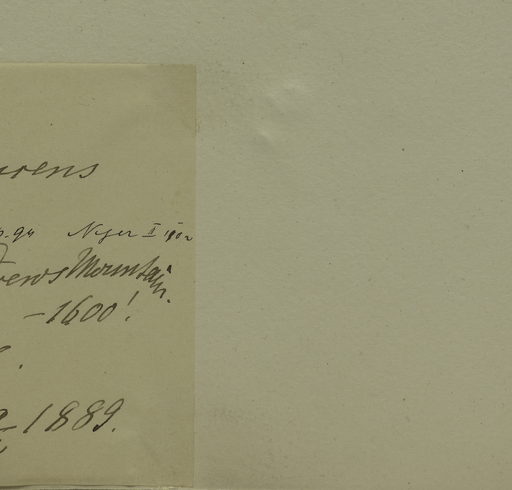 urens
p. 94 Neger II 1902
rews Mountain.
-1600'.
1889.